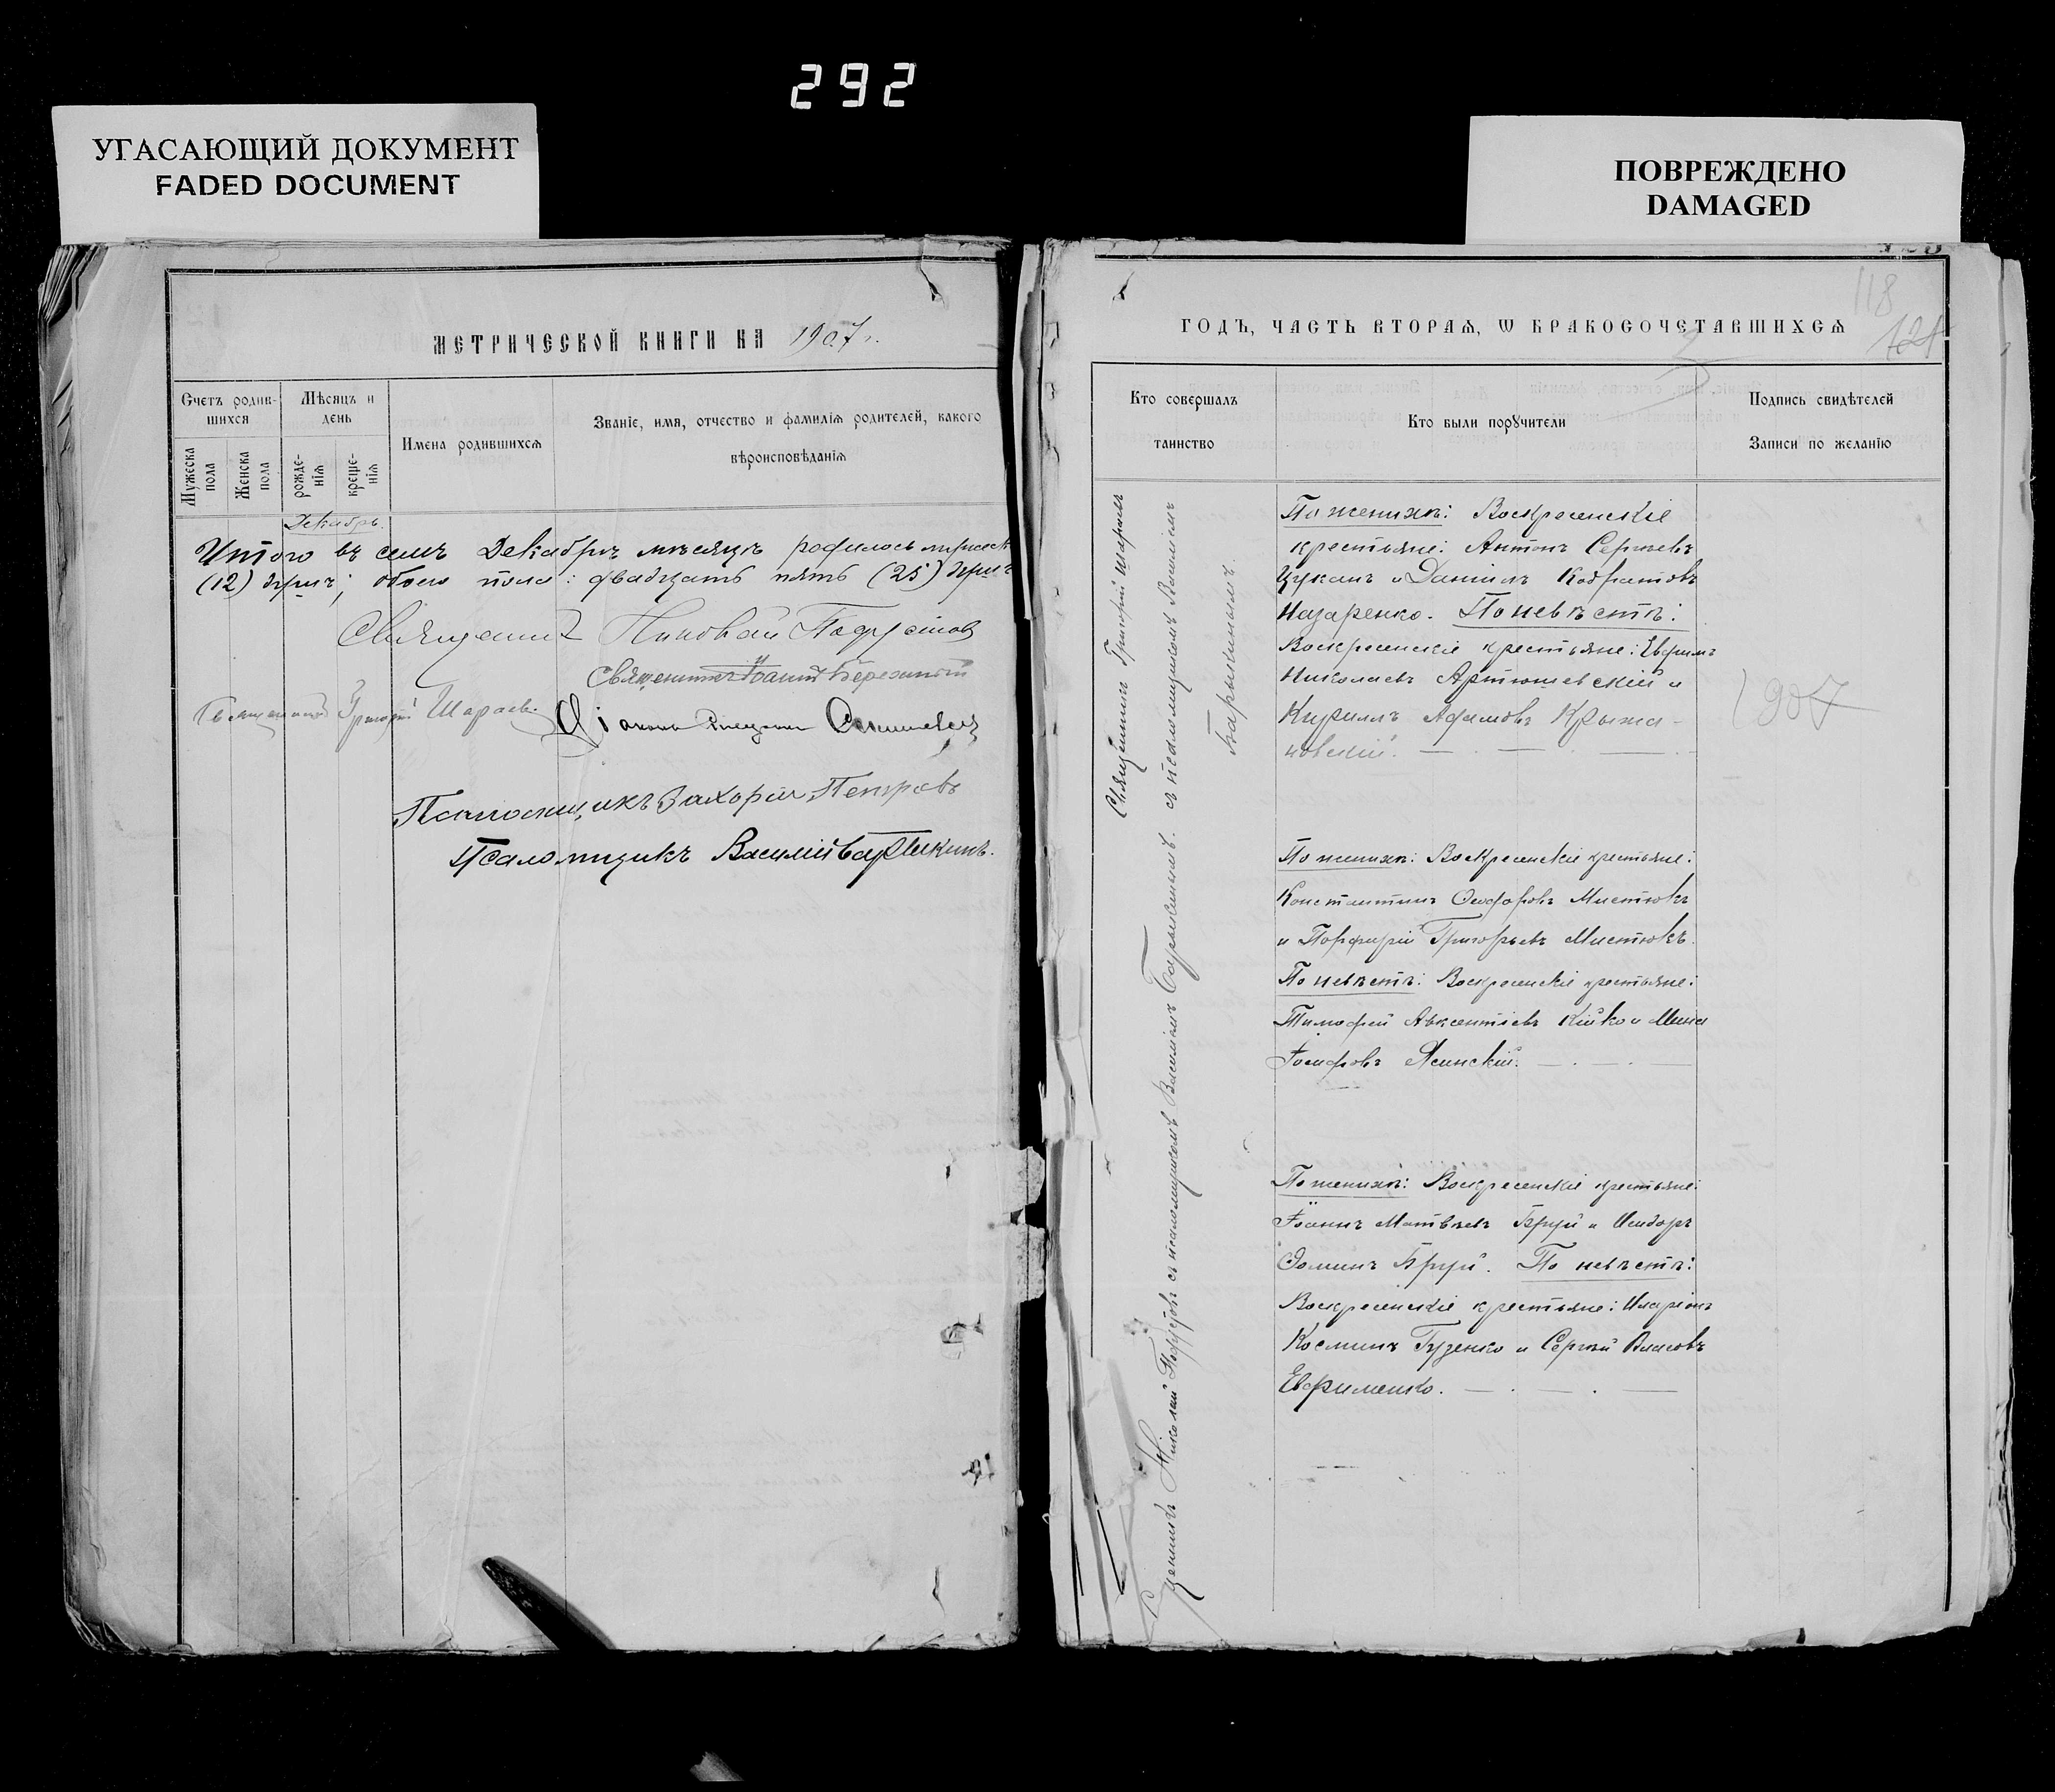 292
УГАСАЮЩИЙ ДОКУМЕНТ
FADED DOCUMENT
ПОВРЕЖДЕНО
DAMAGED
МЕТРИЧЕСКОЙ КНИГИ НА 1907 г.
Счетъ родив-
шихся
Мѣсяцъ и
день
Мужеска
пола
Женска
пола
рожде-
нія
креще-
нія
Имена родившихся
Званіе, имя, отчество и фамилія родителей, какого
вѣроисповѣданія
Декабрь.
Итого въ семъ Декабрѣ мѣсяцѣ родилось
(12) душъ; обоего пола: двадцать пять (25) душъ
Священник Николай
Священникъ
Священникъ Григорій Шараев
Діаконъ
Псаломщикъ Захарій Петровъ
Псаломщикъ Василій Барышкинъ.
118
121
ГОДЪ, ЧАСТЬ ВТОРАЯ, Ѡ БРАКОСОЧЕТАВШИХСЯ
Кто совершалъ
таинство
Кто были порꙋчители
Подпись свидѣтелей
Записи по желанію
Священникъ Григорій Шараевъ
съ псаломщикомъ Василіемъ
Барышкинымъ.
Священникъ Николай съ псаломщикомъ Василіемъ Барышкинымъ.
По женихѣ: Воскресенскіе
крестьяне: Антонъ Сергѣевъ
Цуканъ и Даніилъ Кодратовъ
Назаренко. По невѣстѣ:
Воскресенскіе крестьяне: Ефимъ
Николаевъ Артюшевскій и
Кириллъ Адамовъ Крыжа-
новскій.
1907
По женихѣ: Воскресенскіе крестьяне:
Константинъ Ѳеодоровъ Мистюкъ
и Порфирій Григорьевъ Мистюкъ.
По невѣстѣ: Воскресенскіе крестьяне:
Тимофей Авксентіевъ Кійко и Мина
Іосифовъ Ясинскій.
По женихѣ: Воскресенскіе крестьяне:
Іоаннъ Матвѣевъ Бруй и Исидоръ
Ѳоминъ Бруй. По невѣстѣ:
Воскресенскіе крестьяне: Иларіонъ
Косминъ Гузенко и Сергѣй Власовъ
Ефименко.